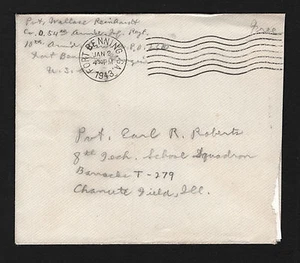 Pvt. Wallace Reinhardt
Free
Co. D. 54th Armored Regt.
10th
Fort Ben
U. S.
FORT BENNING, GA.
JAN 2
4 PM
1943
Pvt. Earl R. Roberts
8th Tech. School Squadron
Barracks T-279
Chanute Field, Ill.